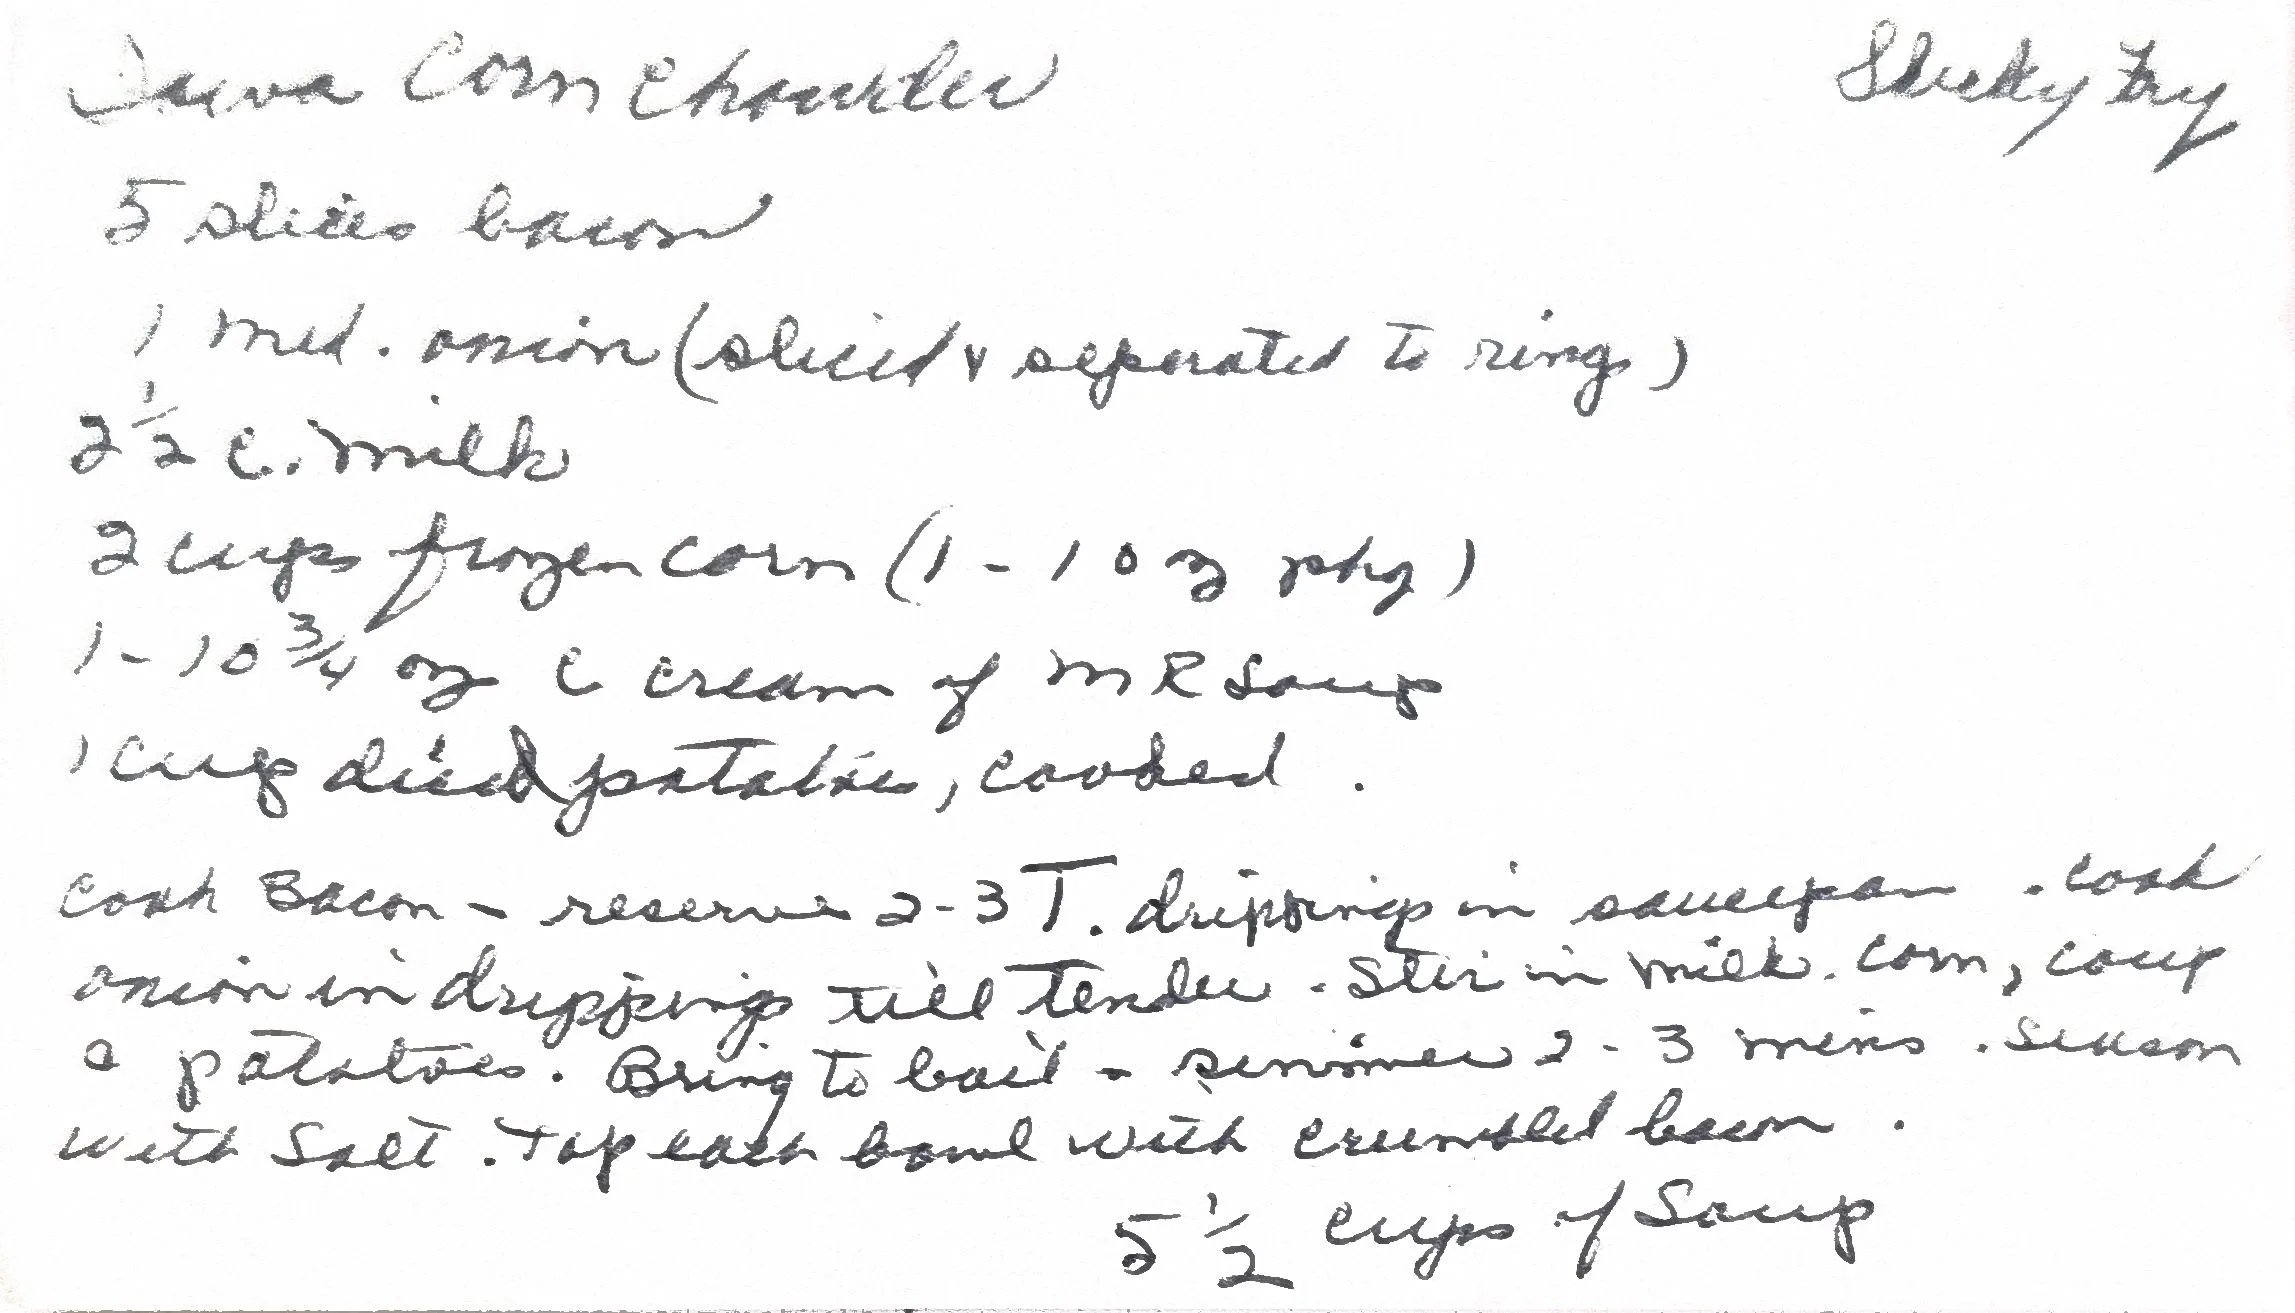 Iowa Corn Chowder
5 slices bacon
1 med. onion (sliced & separated to rings)
2 1/2 c. milk
2 cups frozen corn (1 - 10 oz pkg)
1 - 10 3/4 oz c cream of MR Soup
1 cup diced potatoes, cooked.
Cook Bacon - reserve 2-3 T. drippings in saucepan. Cook
onion in drippings till tender. Stir in milk. corn, soup
& potatoes. Bring to boil - simmer 2-3 mins. Season
with Salt. Top each bowl with crumbled bacon.
5 1/2 cups of Soup